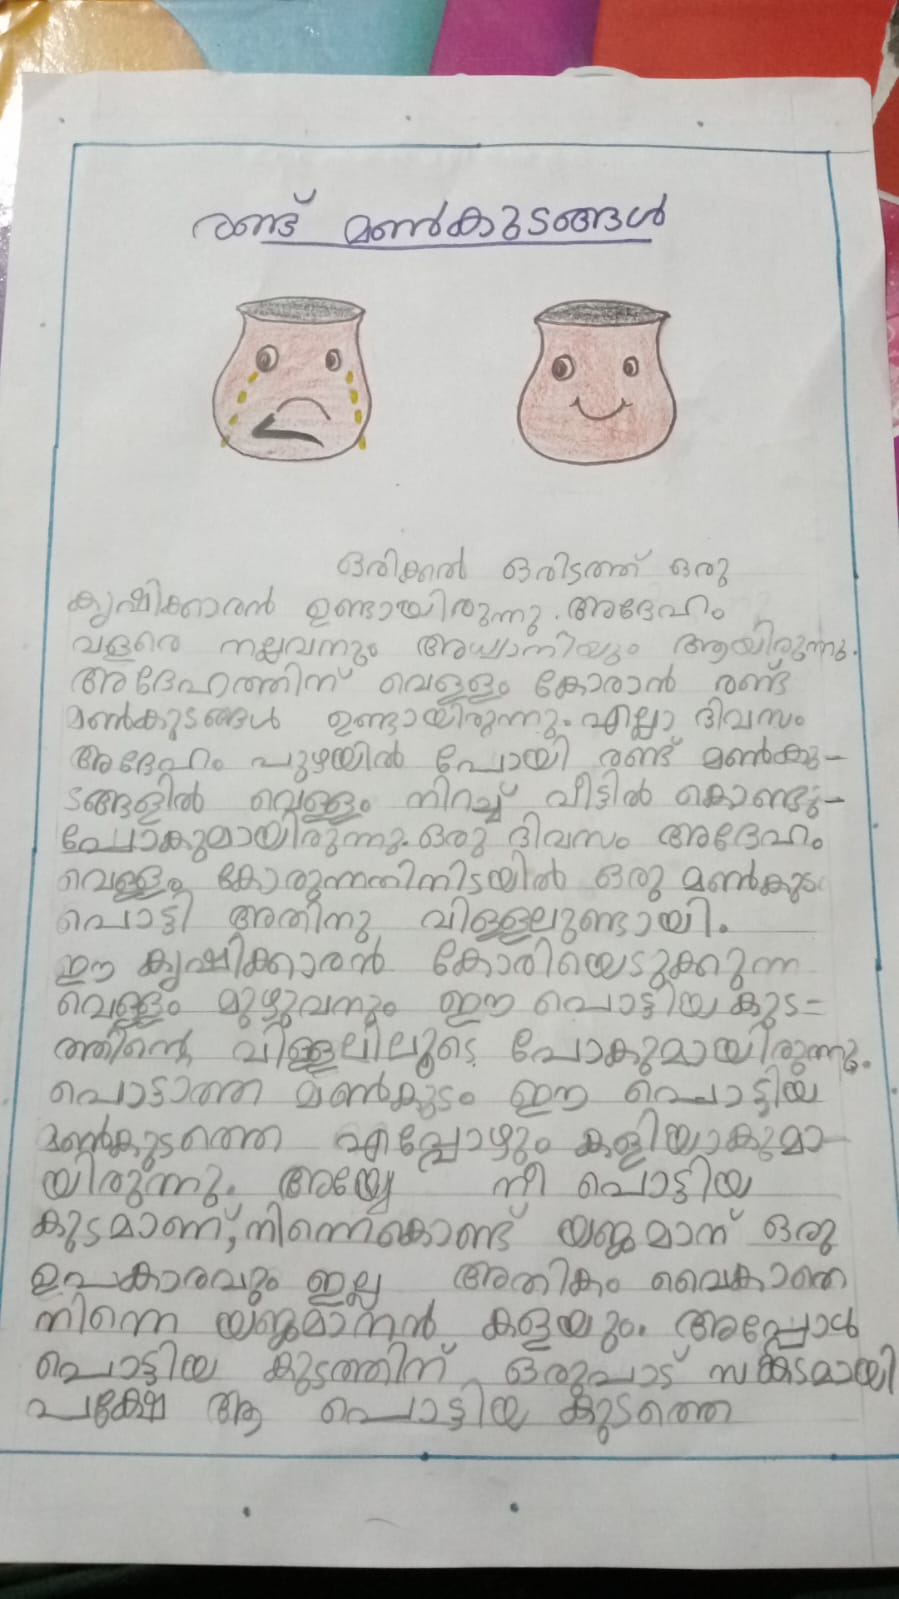 രണ്ട് മൺകുടങ്ങൾ
ഒരിക്കൽ ഒരിടത്ത് ഒരു
കൃഷിക്കാരൻ ഉണ്ടായിരുന്നു. അദേഹം
വളരെ നല്ലവനും അധ്വാനിയും ആയിരുന്നു.
അദേഹത്തിന് വെള്ളം കോരാൻ രണ്ട്
മൺകുടങ്ങൾ ഉണ്ടായിരുന്നു. എല്ലാ ദിവസം
അദേഹം പുഴയിൽ പോയി രണ്ട് മൺകു-
ടങ്ങളിൽ വെള്ളം നിറച്ച് വീട്ടിൽ കൊണ്ടു-
പോകുമായിരുന്നു. ഒരു ദിവസം അദേഹം
വെള്ളം കോരുന്നതിനിടയിൽ ഒരു മൺകുടം
പൊട്ടി അതിനു വിള്ളലുണ്ടായി.
ഈ കൃഷിക്കാരൻ കോരിയെടുക്കുന്ന
വെള്ളം മുഴുവനും ഈ പൊട്ടിയ കുട=
ത്തിന്റെ വിള്ളലിലൂടെ പോകുമായിരുന്നു.
പൊട്ടാത്ത മൺകുടം ഈ പൊട്ടിയ
മൺകുടത്തെ എപ്പോഴും കളിയാകുമാ-
യിരുന്നു. അയ്യേ നീ പൊട്ടിയ
കുടമാണ്, നിന്നെകൊണ്ട് യജമാന് ഒരു
ഉപകാരവും ഇല്ല അതികം വൈകാതെ
നിന്നെ യജമാനൻ കളയും. അപ്പോൾ
പൊട്ടിയ കുടത്തിന് ഒരുപാട് സങ്കടമായി
പക്ഷേ ആ പൊട്ടിയ കുടത്തെ